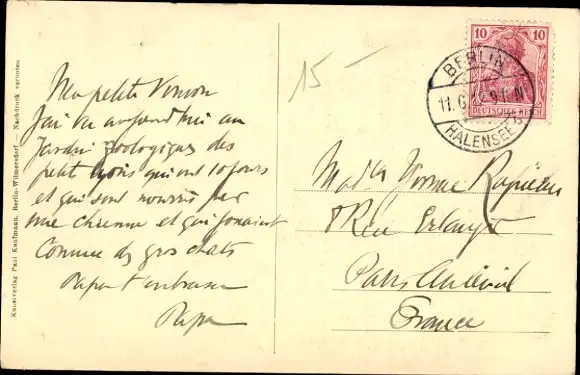 Ma petite Yvonne
J'ai vu aujourd'hui au
Jardin Zoologique des
petits lions qui ont 10 jours
et qui sont nourris par
une chienne et qui jouaient
comme des gros chats
Papa t'embrasse
Papa
15 -
Mad<sup>lle</sup> Yvonne
8 Rue Erlanger
Paris Auteuil
France
10 10
DEUTSCHES REICH
BERLIN
HALENSEE
Kunstverlag Paul Kaufmann, Berlin-Wilmersdorf — Nachdruck verboten